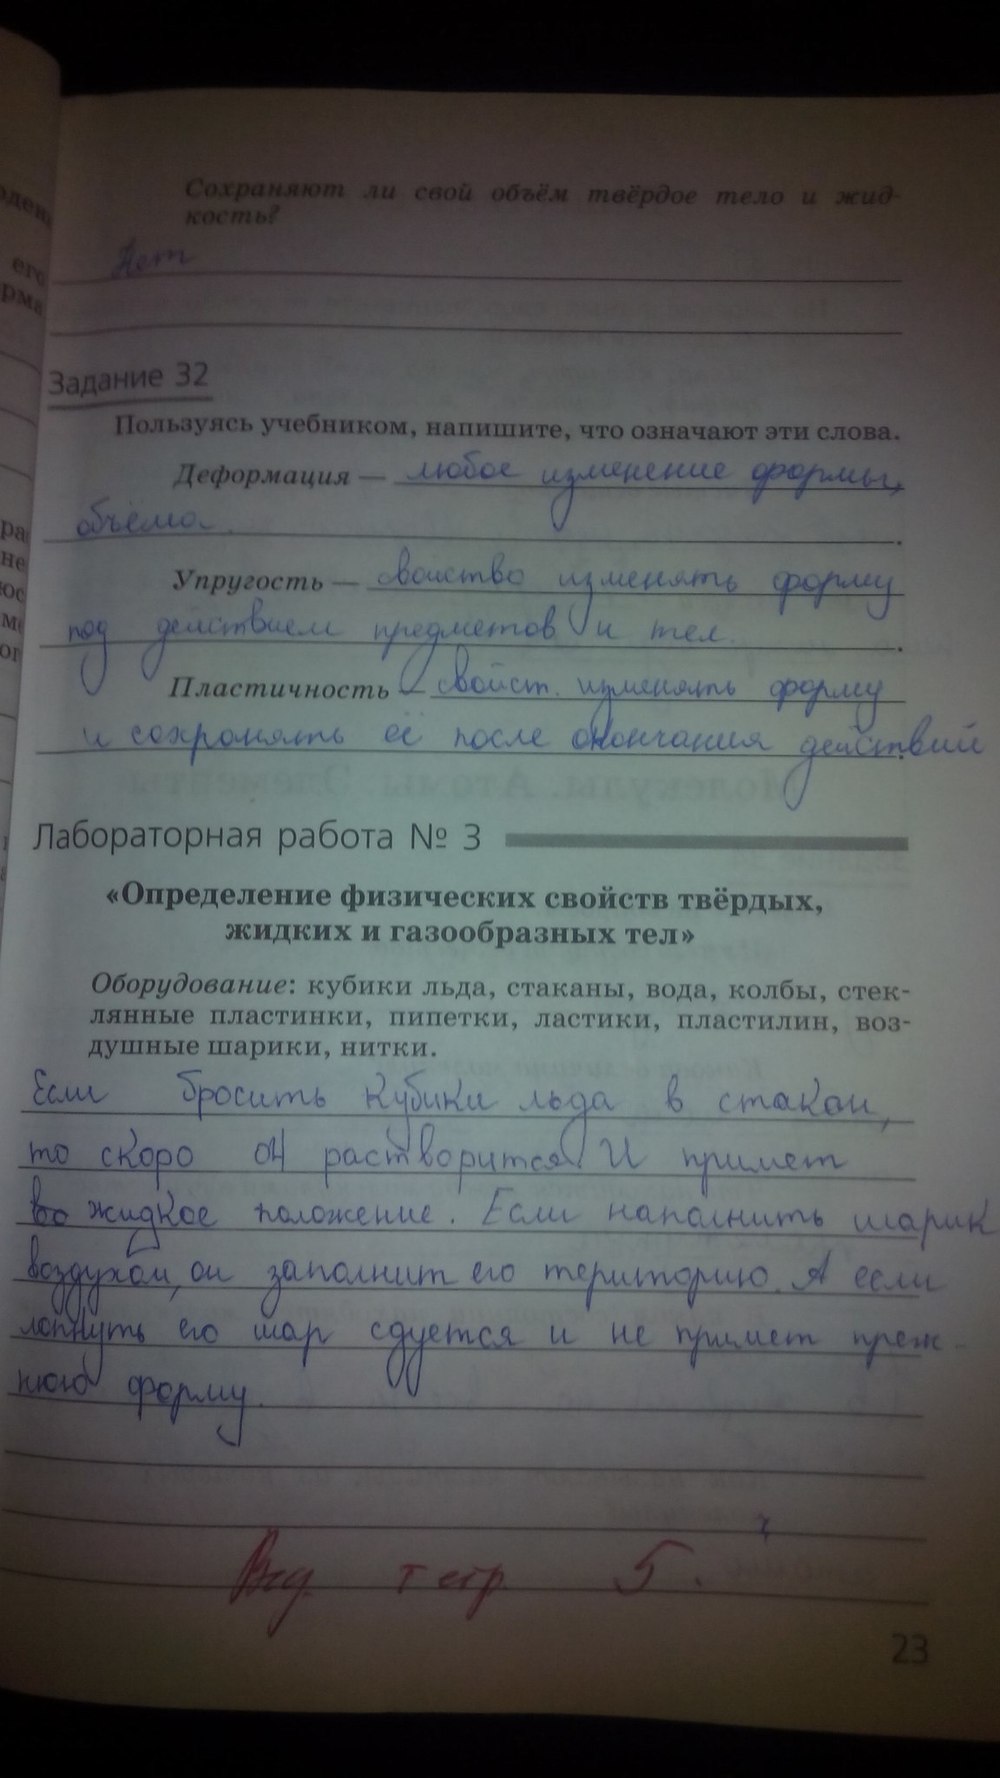 Сохраняют ли свой объём твёрдое тело и жид-
кость?
Нет
Задание 32
Пользуясь учебником, напишите, что означают эти слова.
Деформация — любое изменение формы,
объёма.
Упругость — свойство изменять форму
под действием предметов и тел.
Пластичность — свойст. изменять форму
и сохронять её после окончания действий
Лабораторная работа № 3
«Определение физических свойств твёрдых,
жидких и газообразных тел»
Оборудование: кубики льда, стаканы, вода, колбы, стек-
лянные пластинки, пипетки, ластики, пластилин, воз-
душные шарики, нитки.
Если бросить кубики льда в стакан,
то скоро он растворится. И примет
жидкое положение. Если наполнить шарик
воздухом, он заполнит его територию. А если
лопнуть его шар сдуется и не примет преж-
нюю форму.
тетр. 5.
23